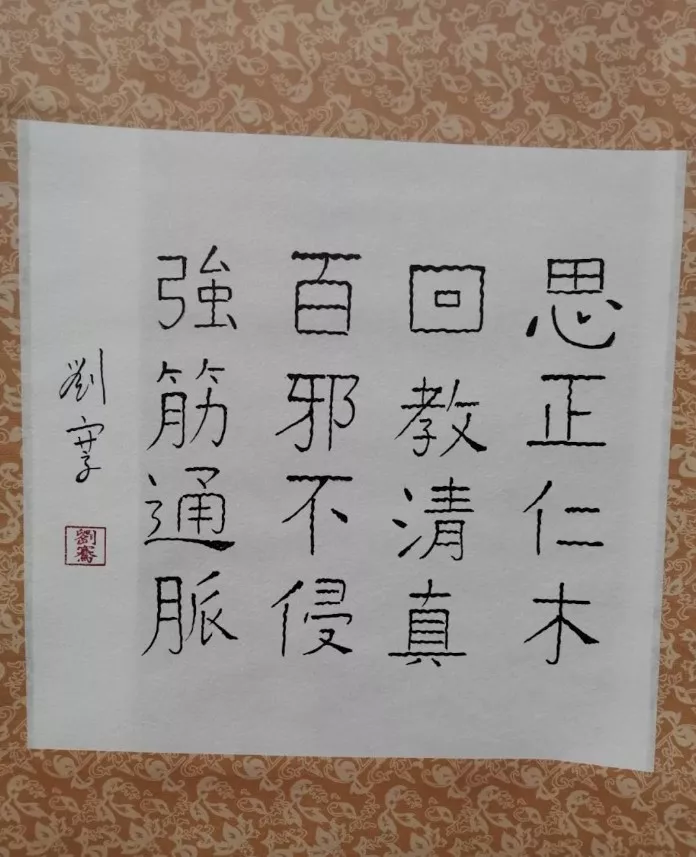 思正仁木
回教清真
百邪不侵
強筋通脈
劉
劉騫